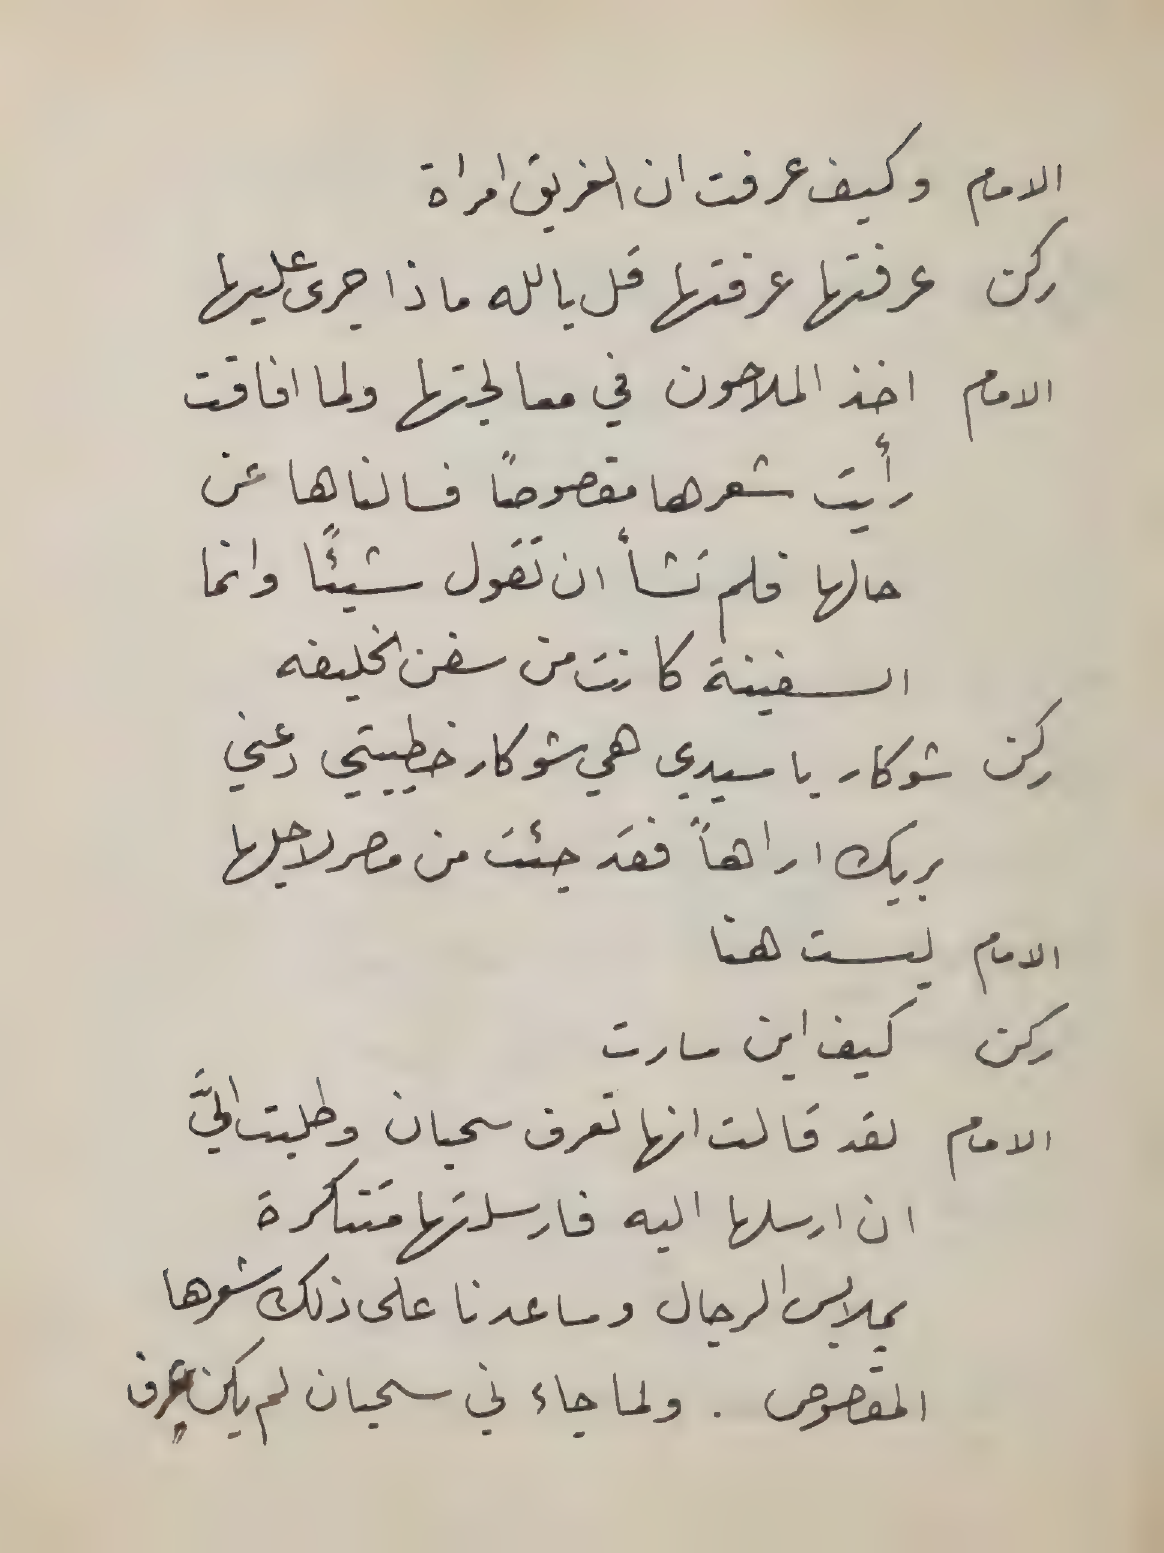 الامام وكيف عرفت ان الغريق امراة
ركن عرفتها عرفتها قل بالله ماذا جرى عليها
الامام اخذ الملاحون في معالجتها ولما افاقت
رأيت شعرها مقصوصًا فسالناها عن
حالها فلم تشأ ان تقول شيئًا وانما
السفينة كانت من سفن الخليفه
ركن شوكار يا سيدي هي شوكار خطيبتي دعني
بربك اراها فقد جئت من مصر لاجلها
الامام ليست هنا
ركن كيف اين سارت
الامام لقد قالت انها تعرف سحبان وطلبت اليَّ
ان ارسلها اليه فارسلتها متنكرة
بملابس الرجال وساعدنا على ذلك شعرها
المقصوص . ولما جاءني سحبان لم يكن يعرف